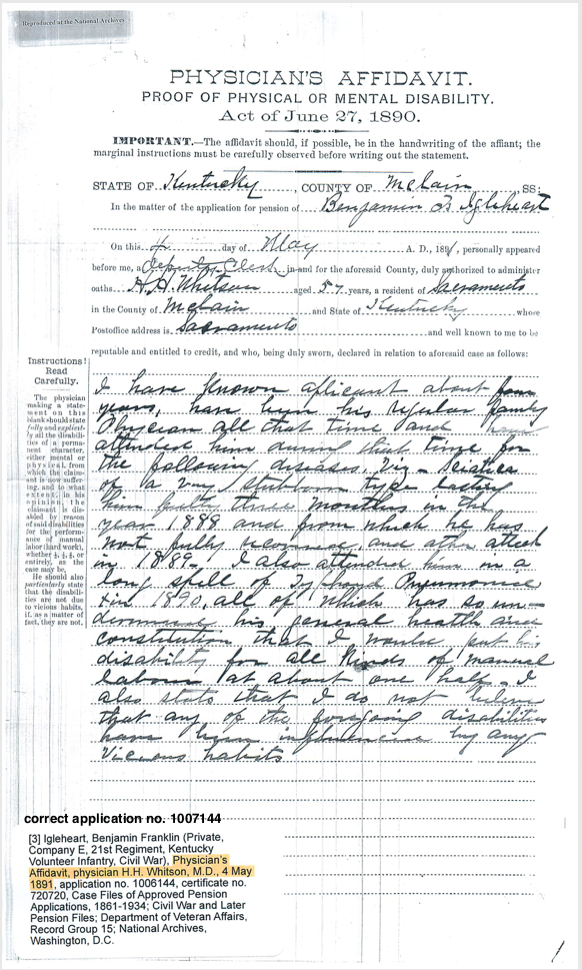 Reproduced at the National Archives
PHYSICIAN'S AFFIDAVIT.
PROOF OF PHYSICAL OR MENTAL DISABILITY.
Act of June 27, 1890.
IMPORTANT.—The affidavit should, if possible, be in the handwriting of the affiant; the
marginal instructions must be carefully observed before writing out the statement.
STATE OF Kentucky, COUNTY OF McLain, SS:
In the matter of the application for pension of Benjamin F Igleheart
On this 4 day of May A. D., 1891, personally appeared
before me, a Deputy Clerk in and for the aforesaid County, duly authorized to administer
oaths H.H. Whitson aged 57 years, a resident of Sacramento
in the County of McLain and State of Kentucky whose
Postoffice address is Sacramento and well known to me to be
reputable and entitled to credit, and who, being duly sworn, declared in relation to aforesaid case as follows:
Instructions!
Read
Carefully.
The physician
making a state-
ment on this
blank should state
fully and explicit-
ly all the disabili-
ties of a perma-
nent character,
either mental or
physical, from
which the claim-
ant is now suffer-
ing, and to what
extent, in his
opinion, the
claimant is dis-
abled by reason
of said disabilities
for the perform-
ance of manual
labor (hard work),
whether
entirely, as the
case may be.
He should also
particularly state
that the disabili-
ties are not due
to vicious habits,
if, as a matter of
fact, they are not.
I have known aplicant about four
years, have been his regular family
Physician all that time and have
attended him during that time for
the following diseases. Viz - Sciatica
of a very stubborn type lasting
him fully three months in the
year 1888 and from which he has
not fully recovered and other attack
in 1889- I also attended him in a
long spell of Typhoyd Pneumonia
in 1890, all of which has so un-
dermined his general health and
constitution that I would put his
disability for all kinds of manual
labour at about one half - I
also state that I do not believe
that any of the foregoing disabilities
have been influenced by any
Vicious habits
correct application no. 1007144
[3] Igleheart, Benjamin Franklin (Private,
Company E, 21st Regiment, Kentucky
Volunteer Infantry, Civil War), Physician's
Affidavit, physician H.H. Whitson, M.D., 4 May
1891, application no. 1006144, certificate no.
720720, Case Files of Approved Pension
Applications, 1861-1934; Civil War and Later
Pension Files; Department of Veteran Affairs,
Record Group 15; National Archives,
Washington, D.C.